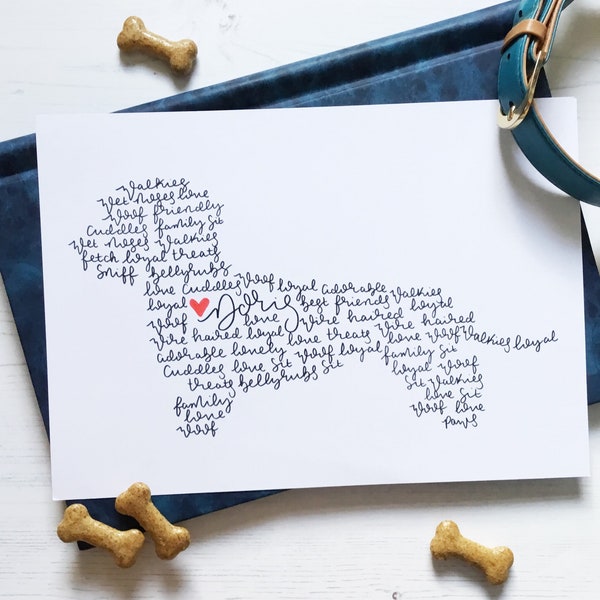 Walkies
wet noses love
woof friendly
cuddles family sit
wet noses walkies
fetch loyal treats
sniff bellyrubs
love cuddles woof loyal adorable walkies
loyal Doris best friends loyal
woof love wire haired wire haired
wire haired loyal love treats love woof walkies loyal
adorable lovely woof loyal family sit
cuddles love sit loyal woof
treats bellyrubs sit sit walkies
family love sit
love woof love
woof paws